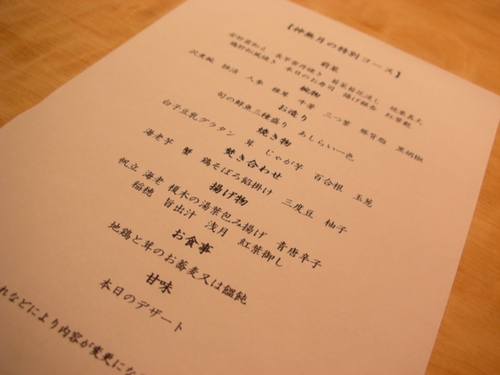 【神無月の特別コース】
前菜
本日のお寿司
椀物
人参 椎茸 牛蒡 三つ葉 黒胡椒
お造り
旬の鮮魚三種盛り あしらい一色
焼き物
白子豆乳グラタン 茸 じゃが芋 百合根 玉葱
焚き合わせ
海老芋 蟹 鶏そぼろ餡掛け 三度豆 柚子
揚げ物
帆立 海老 榎木の湯葉包み揚げ 青唐辛子
稲穂 旨出汁 浅月 紅葉卸し
お食事
地鶏と茸のお蕎麦又は饂飩
甘味
本日のデザート
れなどにより内容が変更にな